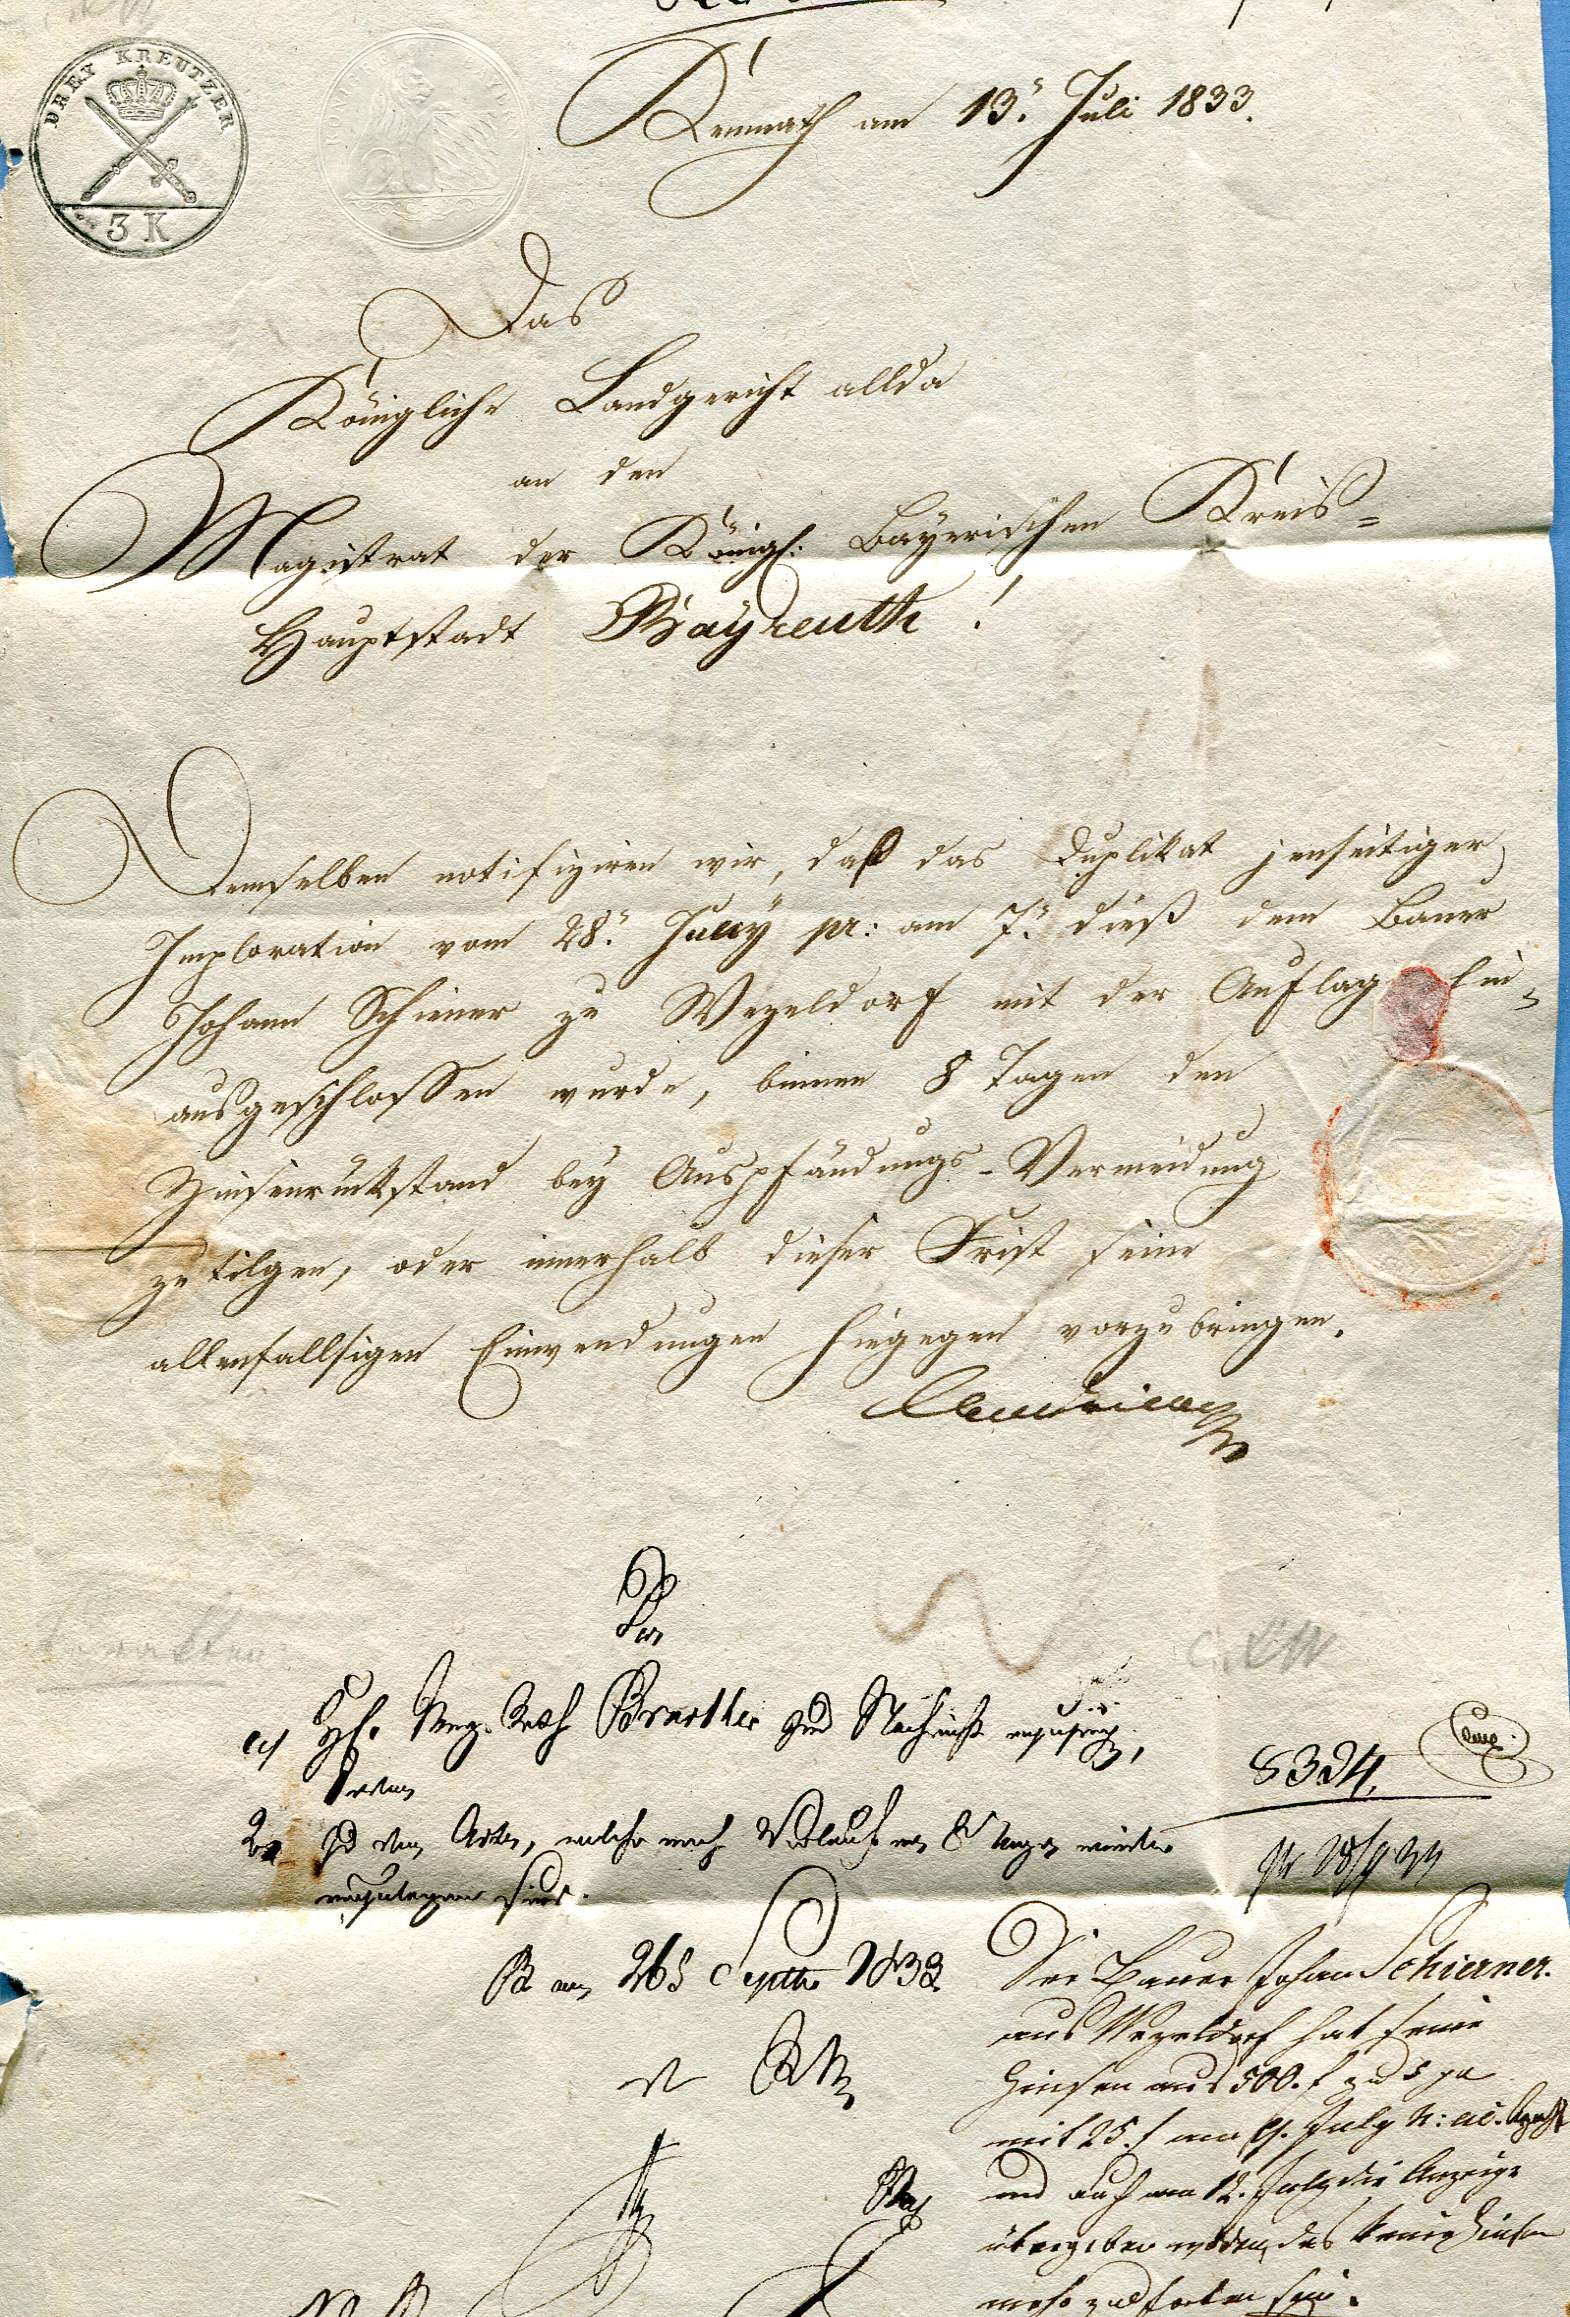 DREY KREUTZER
3 K
Kemnath am 13. Juli 1833.
Das
Königliche Landgericht allda
an den
Magistrat der Königl: Bayerischen Kreis-
Hauptstadt Bayreuth!
Demselben notifiziren wir, daß das Duplikat jenseitiger
Imploration vom 28. Juny pr: am 7. dieß dem Bauer
Johann Schierner zu Wezeldorf mit der Auflag hin-
ausgeschlossen wurde, binnen 8 Tagen den
Zinsenrückstand bey Auspfändungs-Vermeidung
zu tilgen, oder innerhalb dieser Frist seine
allenfallsigen Einwendungen hiegegen vorzubringen.
Mag. Rath zur Nachricht
8324.
zu den Acten, welche nach Verlauf von 8 Tagen wieder
vorzulegen sind.
26 Septbr 1833
Der Bauer Johann Schierner
aus Wezeldorf hat seine
Zinsen aus 500. f zu 5 pc
mit 25 f am 9. July
und auch am 12. July die Anzeige
übergeben worden, das keine Zinsen
mehr zu fordern sein.